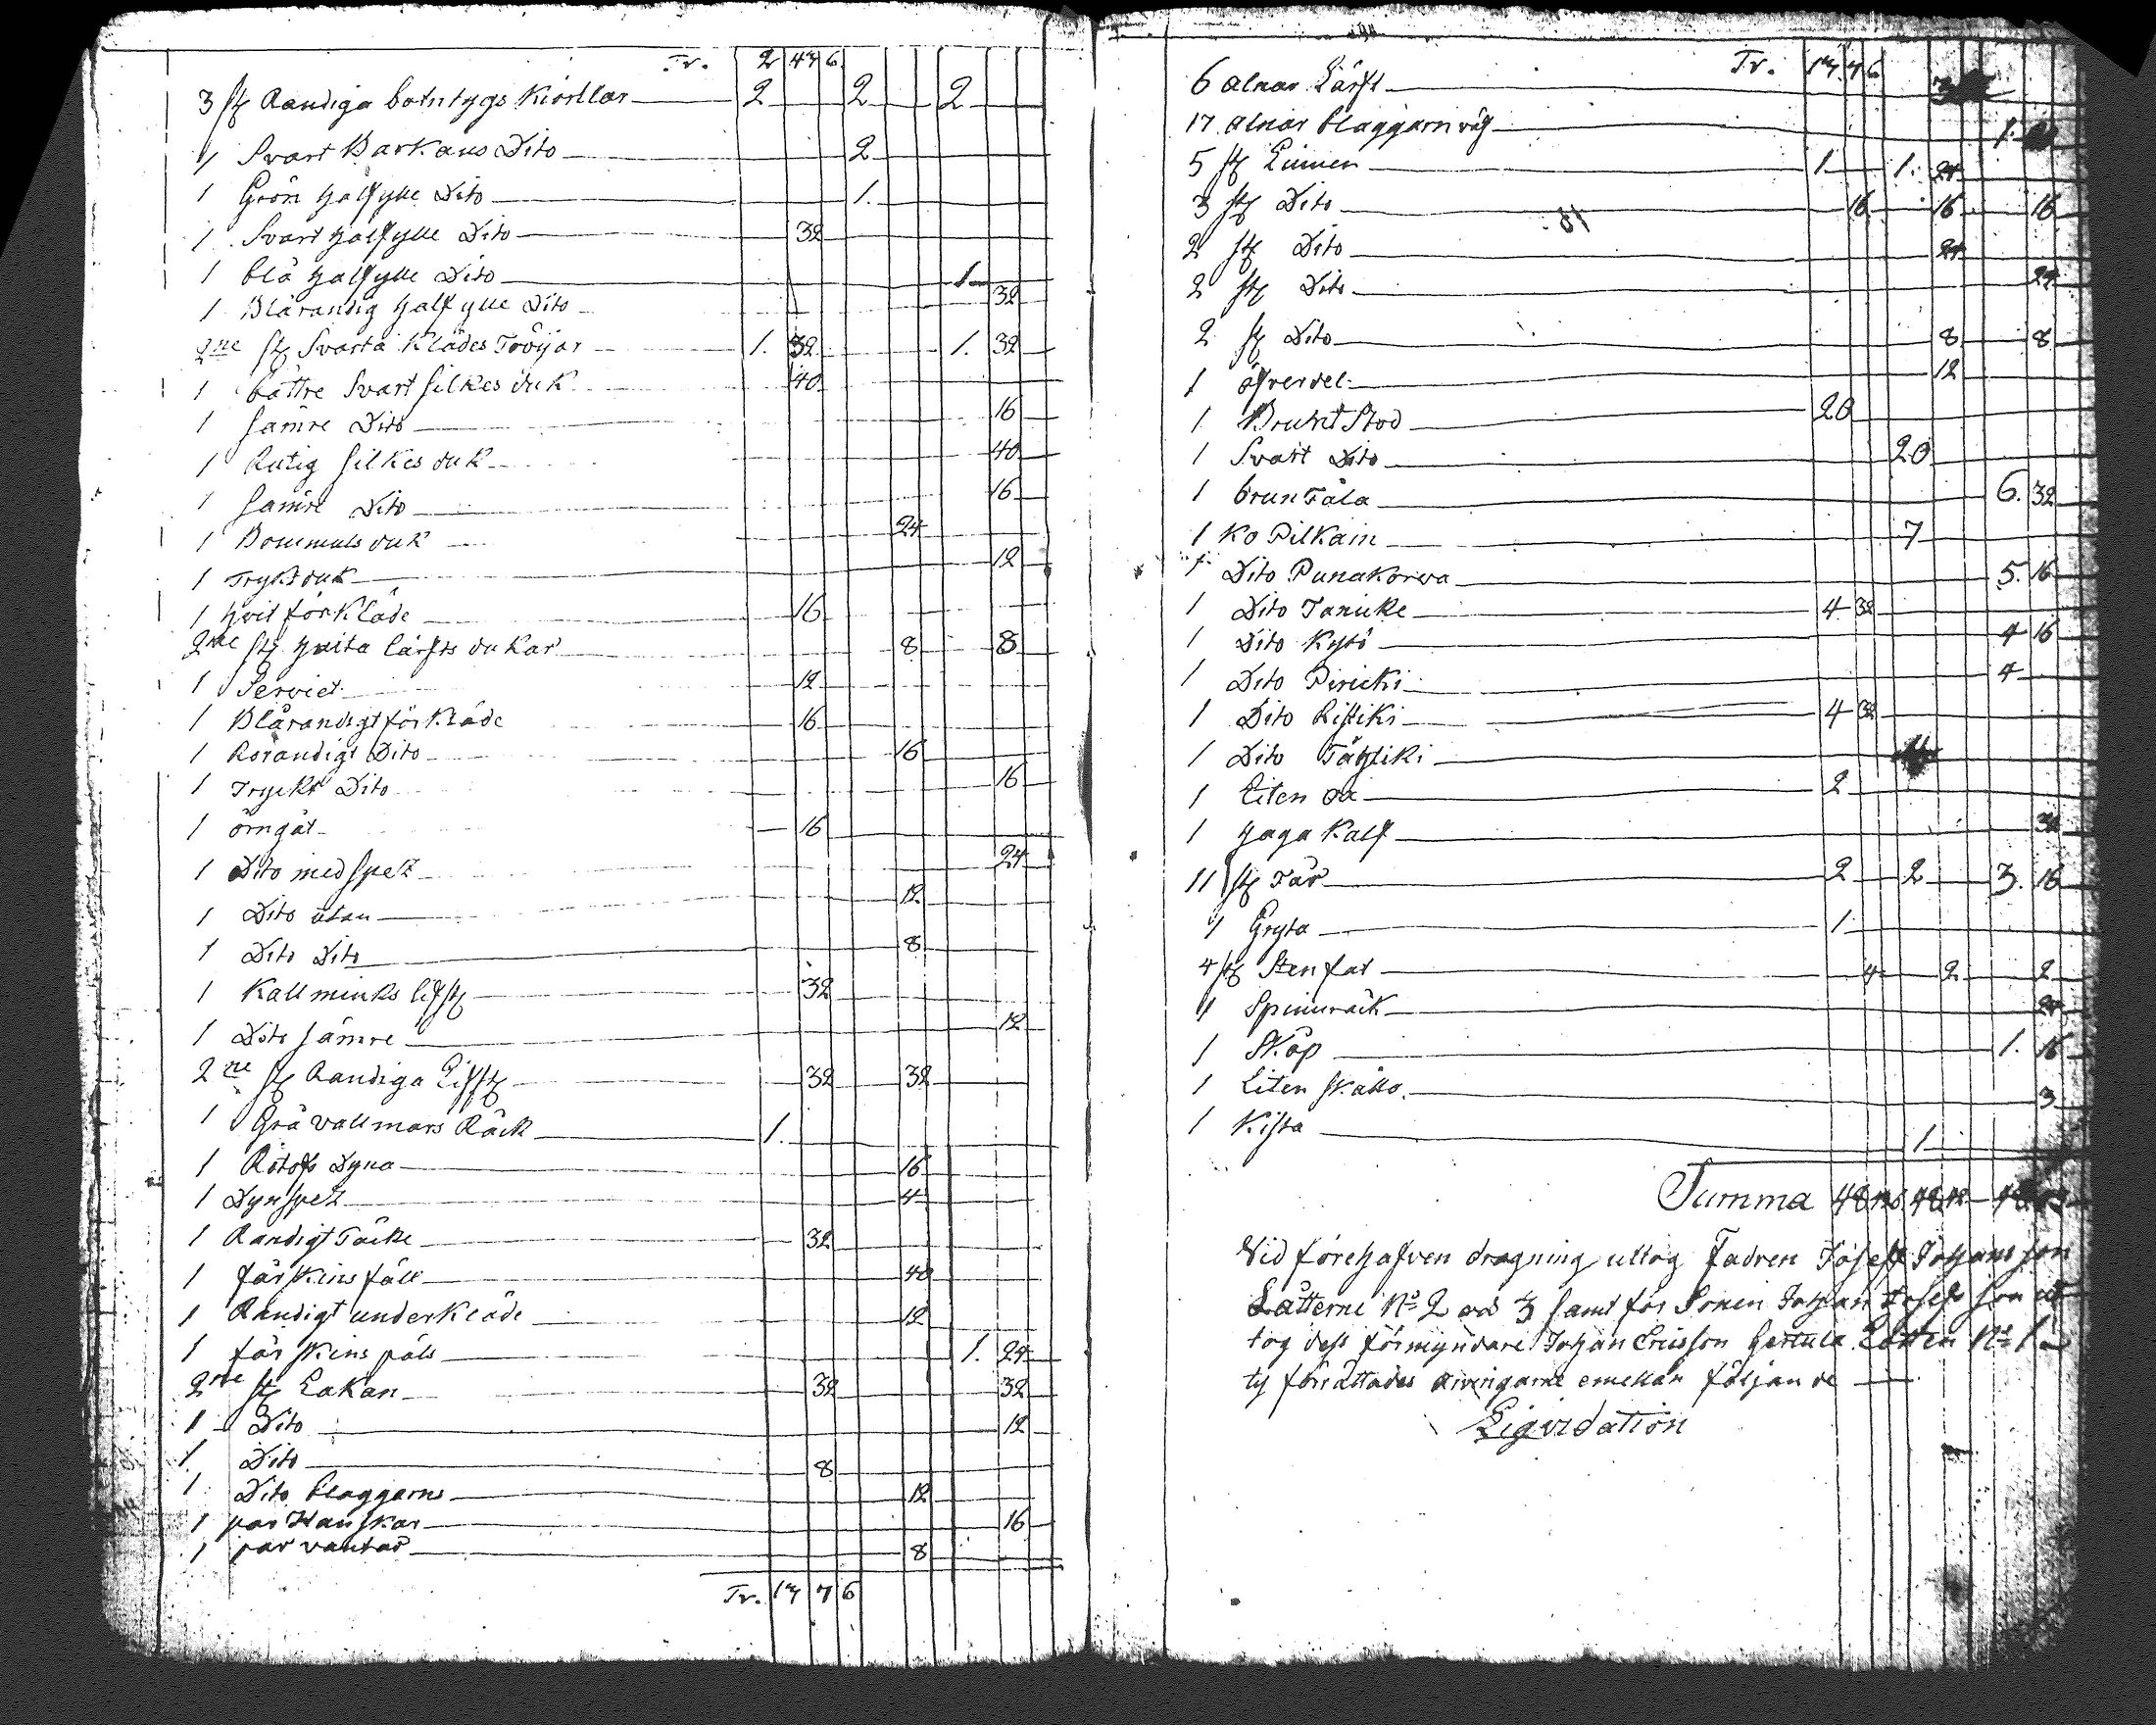 Tr. 2 47 6.
3 st Randiga botntygs Kiortlar 2 2 2
1 Svart Barkans Dito 2
1 Grön halfylle Dito 1.
1 Svart halfylle Dito 32
1 blå halfylle Dito 1
1 Blårandig halfylle Dito 32
2ne st Svarta Klädes Tröijor 1. 32 1. 32
1 bättre Svart silkes duk 40
1 sämre Dito 16
1 Rutig silkes duk 40
1 sämre Dito 16
1 Bommuls duk 24
1 Tryktduk 12
1 hvit förkläde 16
2ne st hvita lärfts dukar 8 8
1 Serviet 12
1 Blårandigt förkläde 16
1 Rorandigt Dito 16
1 Tryckt Dito 16
1 örngåt 16
1 Dito med spetz 24
1 Dito utan 12
1 Dito Dito 8
1 Kallminks lifst 32
1 Dito sämre 12
2ne st Randiga Lifst 32 32
1 Grå vallmars Råck 1.
1 Dyna 16
1 Dynspetz 4
1 Randigt Täcke 32
1 fårskins fäll 40
1 Randigt underkläde 12
1 fårskins päls 1. 24
2ne st Lakan 32 32
1 Dito 12
1 Dito 8
1 Dito blaggarns 12
1 par Hanskar 16
1 par vantar 8
Tr. 17 7 6
Tr. 17. 7 6
6 alnar Lärft
17 alnar blaggarn väf 1.
5 st Linnen 1 1. 24
3 st Dito 16 16 16
2 st Dito 24
2 st Dito 24
2 st Dito 8 8
1 öfverdel 12
1 Brunt Stod 20
1 Svart Dito 20
1 brun Fåla 6. 32
1 Ko Pilkain 7
1 Dito Punakorva 5. 16
1 Dito Tanicke 4 32
1 Dito Kytö 4 16
1 Dito Piricki 4
1 Dito Ristiki 4 32
1 Dito Tähtiki
1 Liten oxe 2
1 haga Kalf 32
11 st Får 2 2 3. 16
1 Gryta 1
4 st Stenfat 4 2 2
1 Spinnråck 24
1 Skåp 1. 16
1 Liten skåtto 3
1 Kista 1
Summa 48
Vid förehafven dragning uttog Fadren Josef Johansson
Låtterne No 2 och 3 samt för Sonen Johan Josefsson ut
tog dess förmyndare Johan Ericsson Låtten No 1
ty förrättades arvingarne emellan följande
Liqvidation